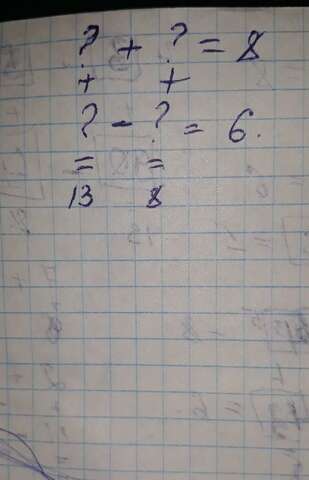 ? + ? = 8
+ +
? - ? = 6.
= =
13 8